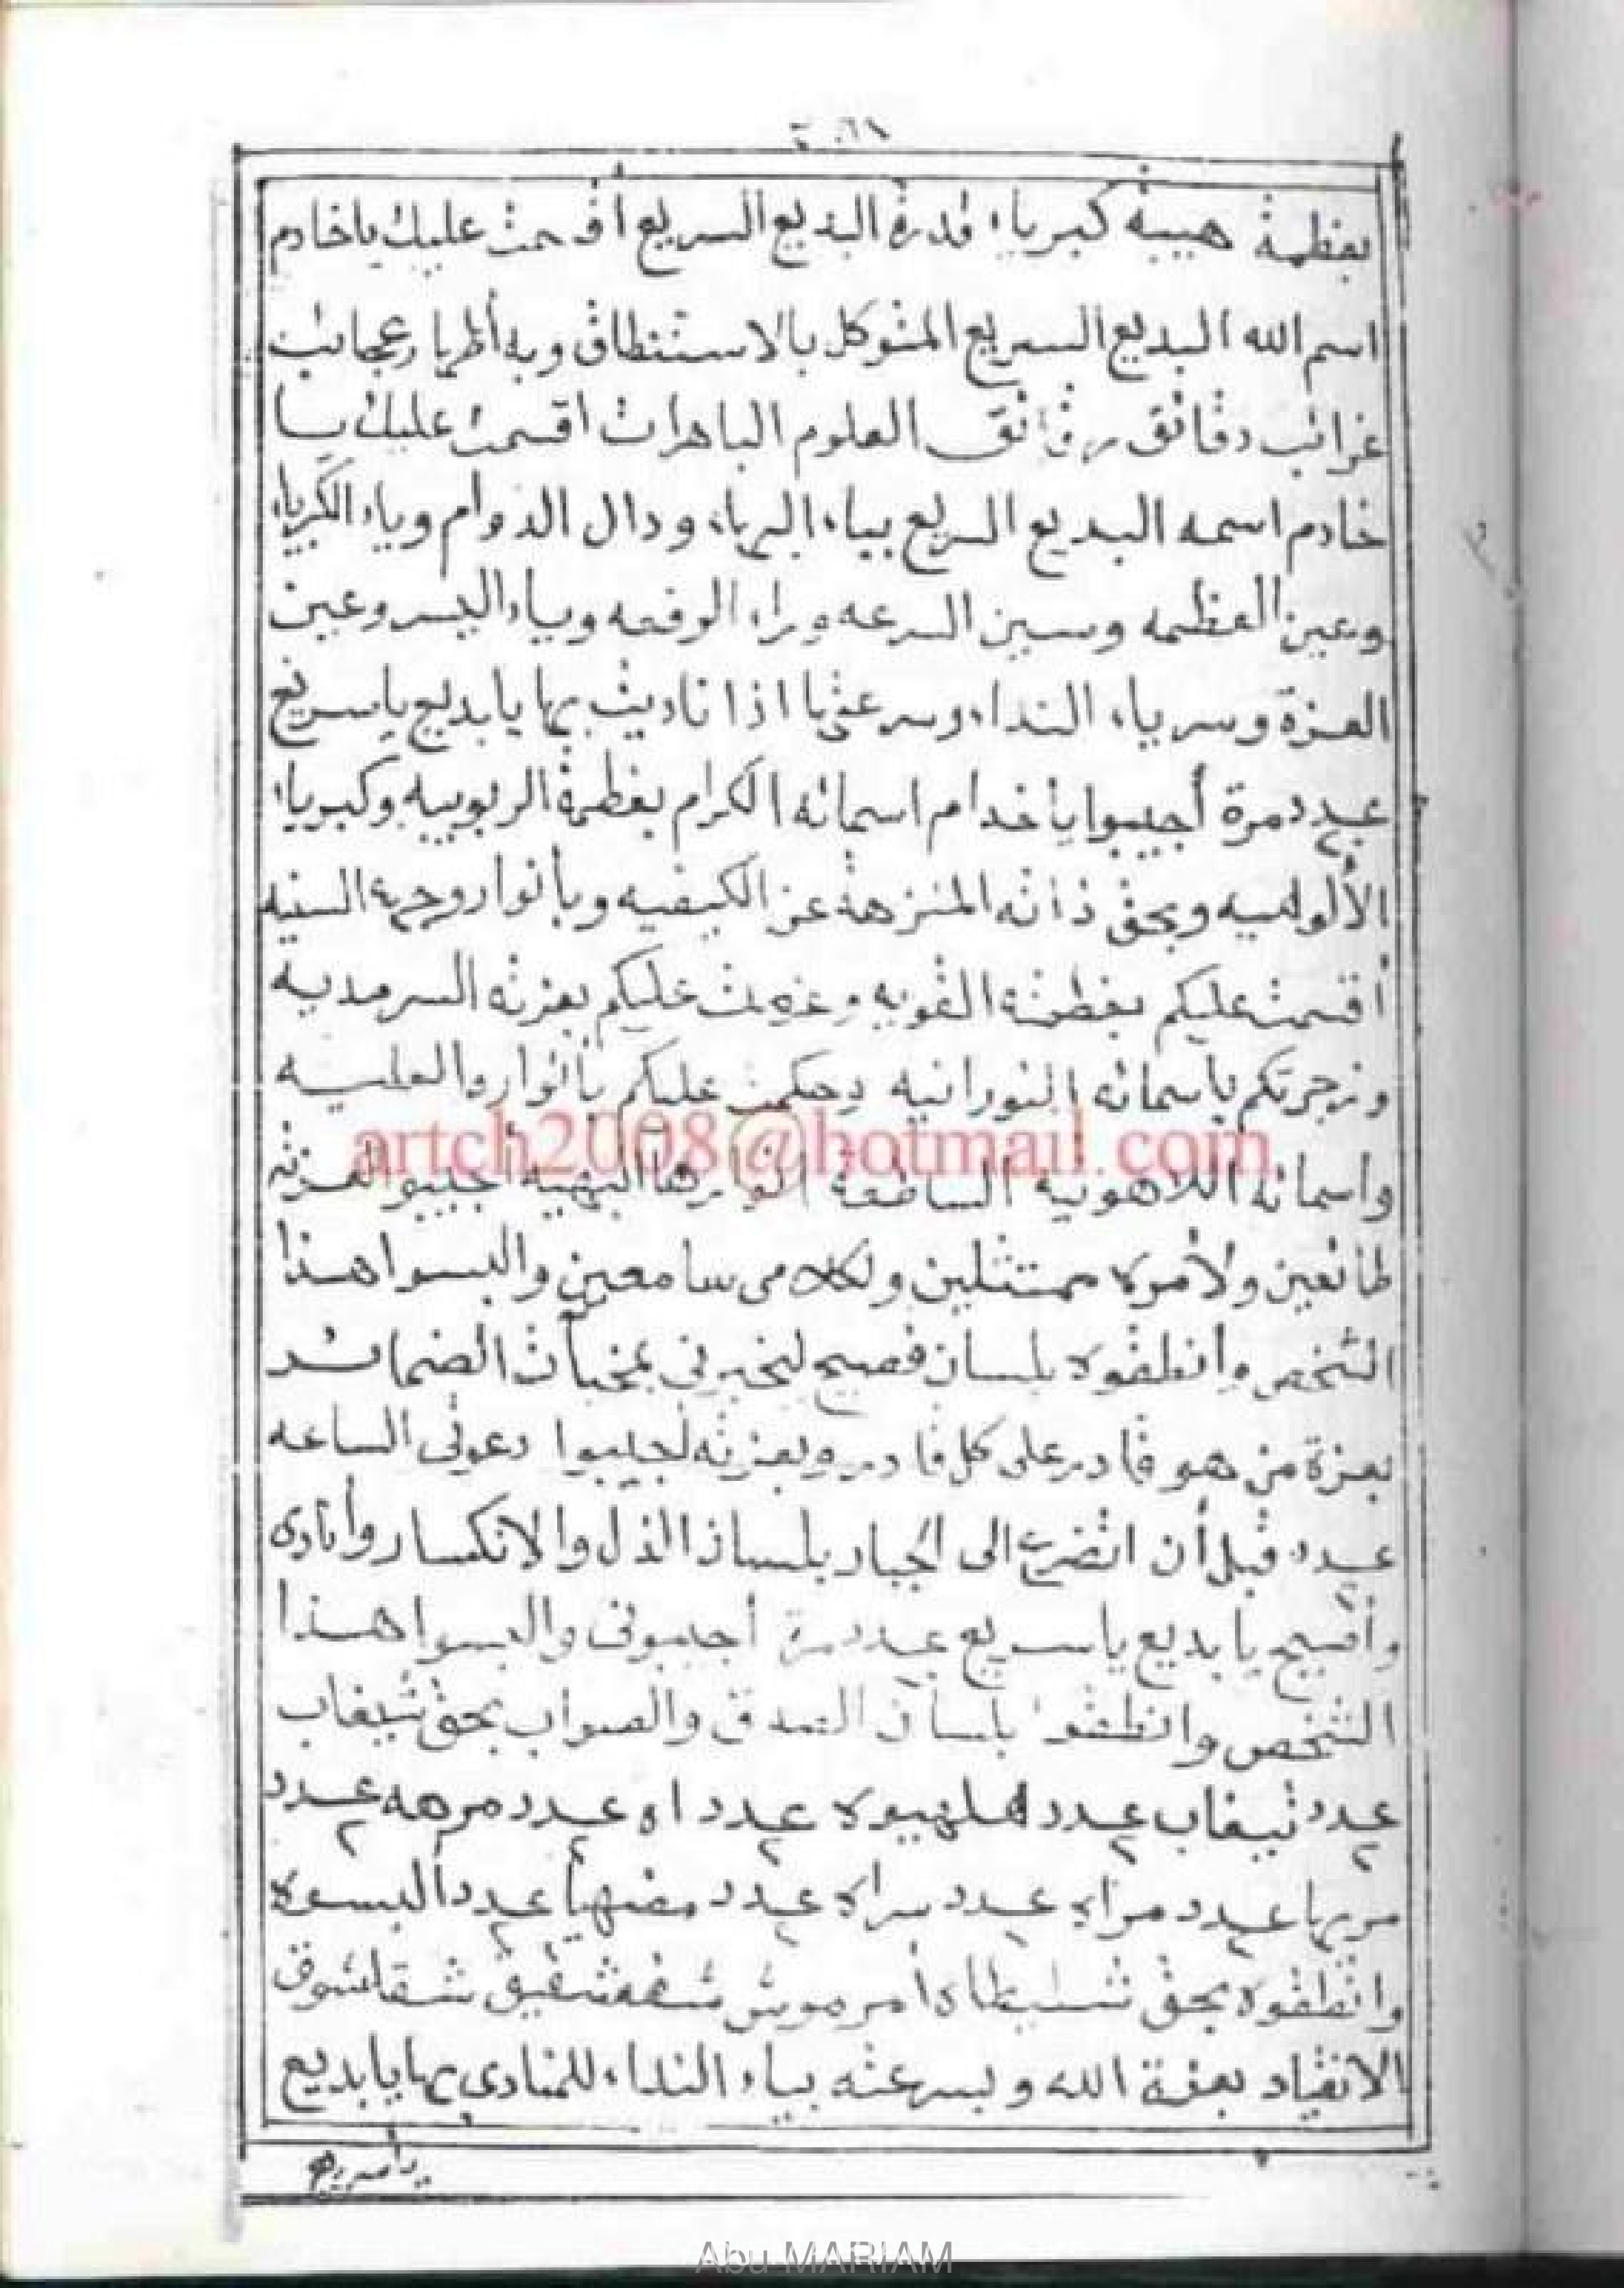 بعظمة هيبة كبرياء قدرة البديع السريع أقسمت عليك ياخادم
اسم الله البديع السريع المتوكل بالاستنطاق وبه أظهار عجائب
غرائب دقائق رقائق العلوم الباهرات اقسمت عليك يا
خادم اسمه البديع السريع بباء البهاء ودال الدوام وياء الكبرياء
وعين العظمه وسين السرعه وراء الرفعه وياء اليسر وعين
العزة وسر ياء النداء وسرعتها اذا ناديت بها يابديع ياسريع
عدد مرة أجيبوا ياخدام اسمائه الكرام بعظمة الربوبيه وكبرياء
الألوهيه وبحق ذاته المنزهة عن الكيفيه وبأنوار وجهه السنيه
أقسمت عليكم بعظمته القويه وعزمت عليكم بعزته السرمديه
وزجرتكم باسمائه النورانيه وحكمت عليكم بأنواره العليه
واسمائه اللاهوتيه الساطعة انوارها البهيه أجيبو العزته
artch2008@hotmail.com
طائعين ولأمره ممتثلين ولكلامى سامعين والبسوا هذا
الشخص وانطقوه بلسان فصيح ليخبرنى بمخبأت الضمائر
بعزة من هو قادر على كل قادر وبعزته أجيبوا دعوتى الساعه
عدد قبل أن اتضرع الى الجبار بلسان الذل والانكسار وأنادى
وأصيح يابديع ياسريع عدد مرة أجيبونى والبسوا هذا
الشخص وانطقوا بلسان الصدق والصواب بحق
عدد عدد عدد اه عدد مرهه عدد
عدد عدد عدد عدد البسوه
وانطقوه بحق
الانقياد بعزة الله وبسرعته بياء النداء للمنادى بها يابديع
ياسريع
Abu MARIAM